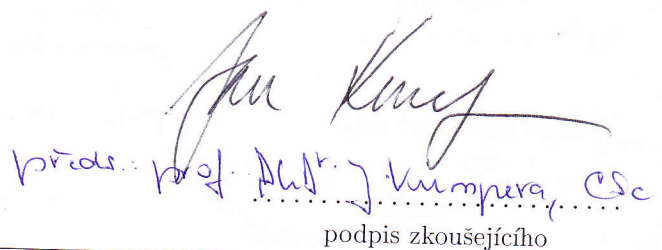 Jan
předs.: prof. PhDr. J. Kumpera, CSc
podpis zkoušejícího